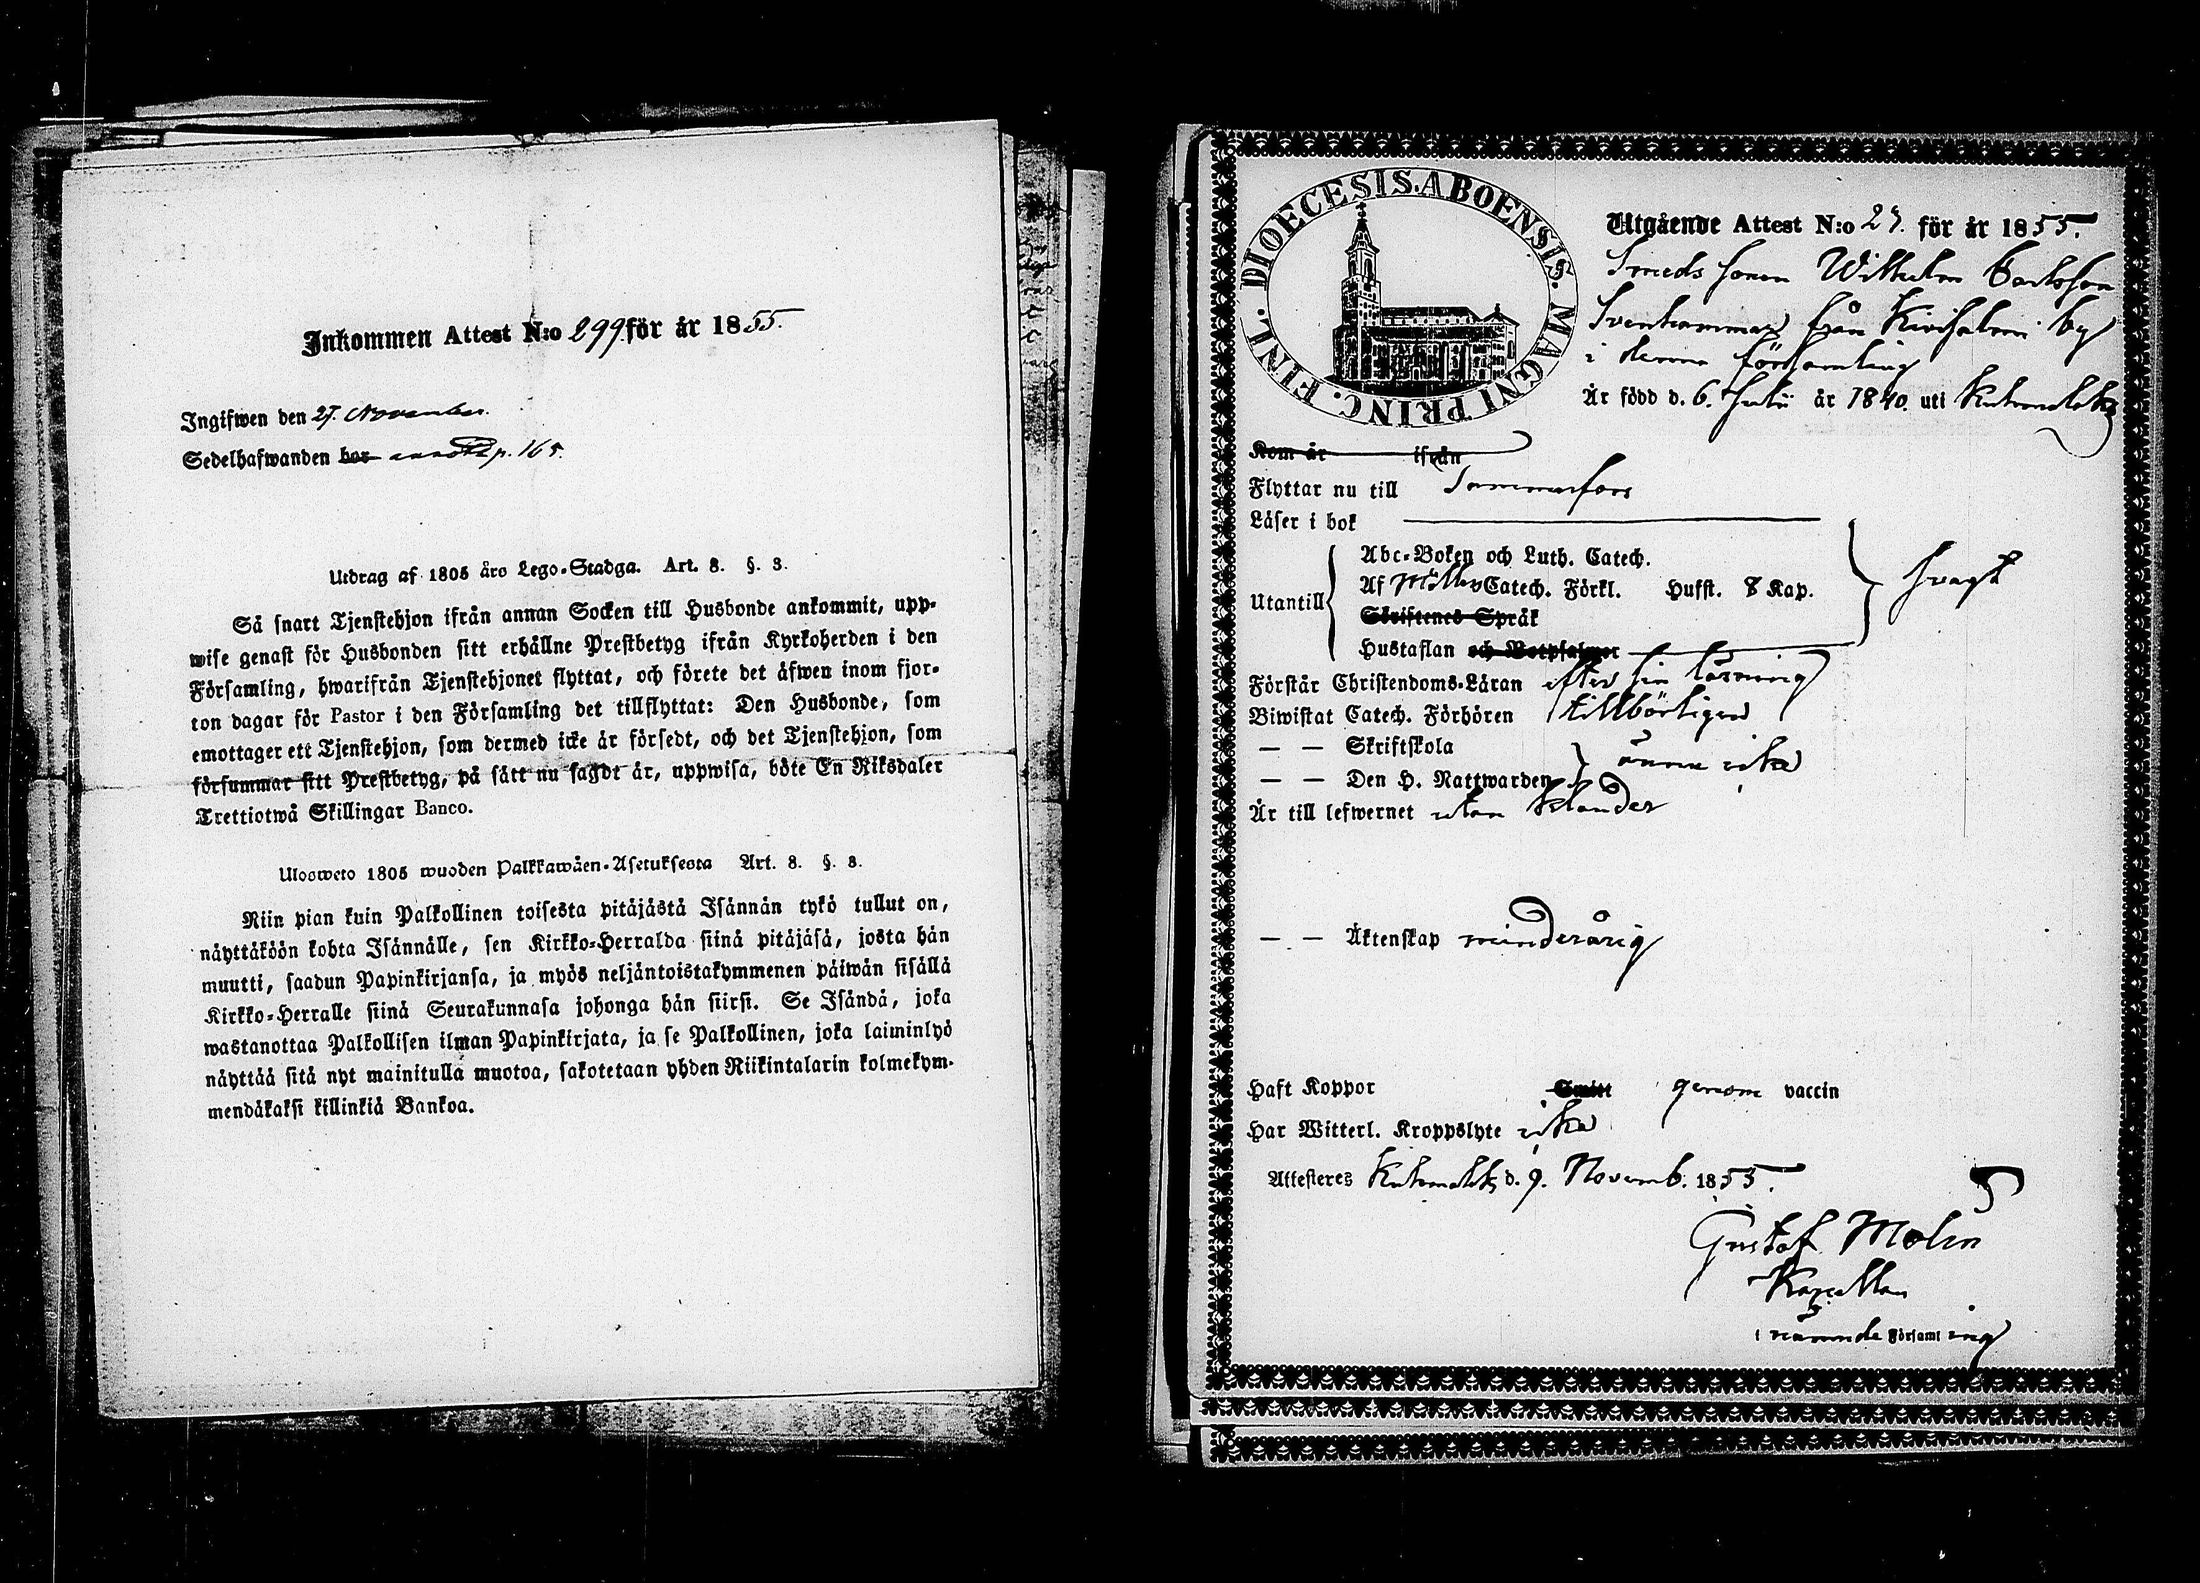 Inkommen Attest N:o 299 för år 1855.
Ingifwen den 27. November.
Sedelhafwanden bor annot. p. 165.
Utdrag af 1805 års Lego-Stadga. Art. 8. §. 3.
Så snart Tjenstehjon ifrån annan Socken till Husbonde ankommit, upp-
wise genast för Husbonden sitt erhållne Prestbetyg ifrån Kyrkoherden i den
Församling, hwarifrån Tjenstehjonet flyttat, och förete det äfwen inom fjor-
ton dagar för Pastor i den Församling det tillflyttat: Den Husbonde, som
emottager ett Tjenstehjon, som dermed icke är försedt, och det Tjenstehjon, som
försummar sitt Prestbetyg, på sätt nu sagdt är, uppwisa, böte En Riksdaler
Trettiotwå Skillingar Banco.
Ulosweto 1805 wuoden Palkkawäen-Asetuksesta Art. 8. §. 3.
Niin pian kuin Palkollinen toisesta pitäjästä Isännän tykö tullut on,
näyttäköön kohta Isännälle, sen Kirkko-Herralda siinä pitäjäsä, josta hän
muutti, saadun Papinkirjansa, ja myös neljäntoistakymmenen päiwän sisällä
Kirkko-Herralle siinä Seurakunnasa johonga hän siirsi. Se Isändä, joka
wastanottaa Palkollisen ilman Papinkirjata, ja se Palkollinen, joka laiminlyö
näyttää sitä nyt mainitulla muotoa, sakotetaan yhden Riikintalarin kolmekym-
mendäkaksi killinkiä Bankoa.
FINL. DIOECESIS. ABOENSIS. MAGNI PRINC.
Utgående Attest N:o 23. för år 1855.
Smeds sonen Wilhelm Carlsson
Svenhammar från Kivisalmi by
i denna församling
Är född d. 6. Julii år 1840. uti Kuhmalaks
Kom år ifrån
Flyttar nu till Tammerfors
Läser i bok
Abc-Boken och Luth. Catech.
Af Möllers Catech. Förkl. Hufst. 8 Kap.
Utantill svagt
Skriftenes Språk
Hustaflan och Botpsalmer
Förstår Christendoms-Läran efter sin lärning
Biwistat Catech. Förhören tillbörligen
— — Skriftskola
ännu icke
— — Den H. Nattwarden
Är till lefwernet utan klander
— — Äktenskap minderårig
Haft Koppor Smitt genom vaccin
Har Witterl. Kroppslyte icke
Attesteres Kuhmalaks d. 9. Novemb. 1855.
Gustaf Molin
Kapellan
i nämnde Församling